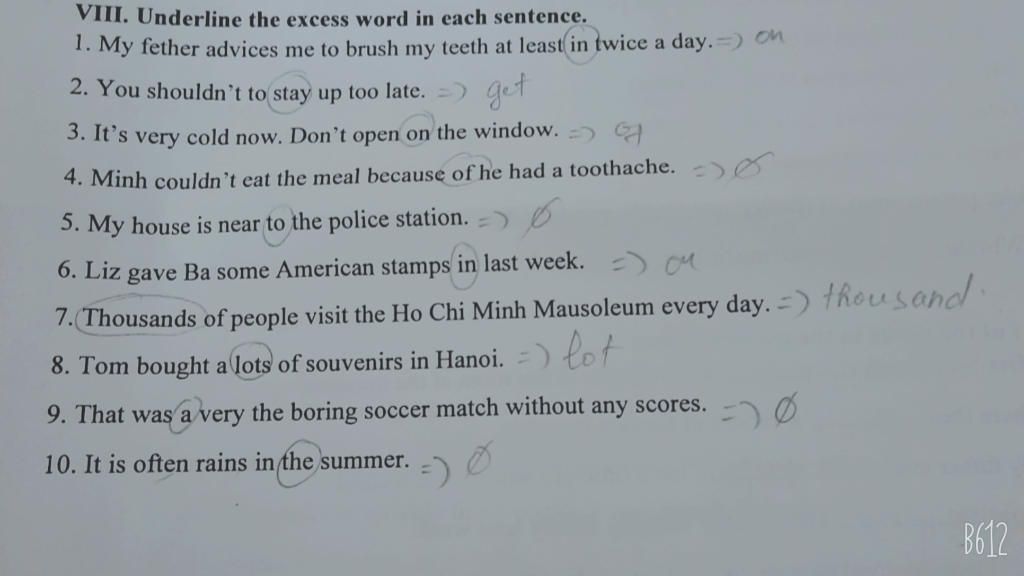 VIII. Underline the excess word in each sentence.
1. My fether advices me to brush my teeth at least in twice a day. => on
2. You shouldn't to stay up too late. => get
3. It's very cold now. Don't open on the window. =>
4. Minh couldn't eat the meal because of he had a toothache. => Ø
5. My house is near to the police station. => Ø
6. Liz gave Ba some American stamps in last week. => on
7. Thousands of people visit the Ho Chi Minh Mausoleum every day. => thousand.
8. Tom bought a lots of souvenirs in Hanoi. => lot
9. That was a very the boring soccer match without any scores. => Ø
10. It is often rains in the summer. => Ø
B612